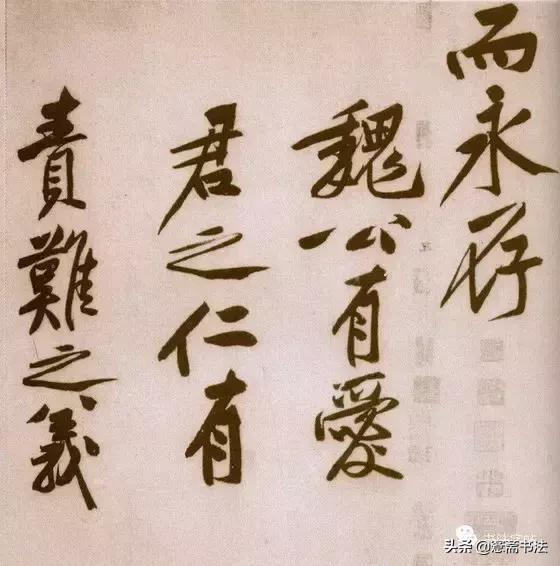 而永存
魏公有愛
君之仁有
責難之義
头条@憲斋书法